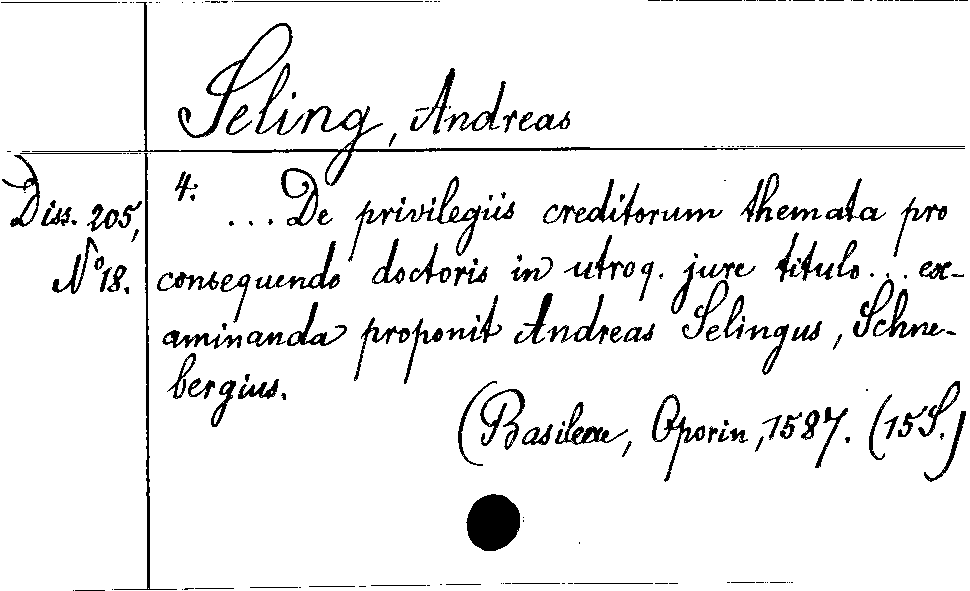 Seling, Andreas
Diss. 205,
No 18.
4.
... De privilegiis creditorum themata pro
consequendo doctoris in utroq. jure titulo... ex-
aminanda proponit Andreas Selingus, Schne-
bergius.
(Basileae, Oporin, 1587. (15 S.)